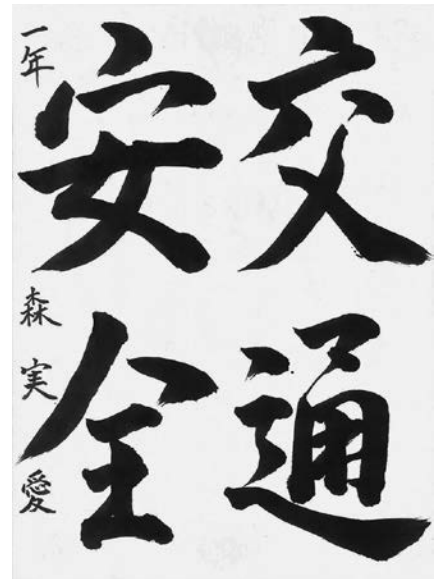 交通
安全
一年 森実愛